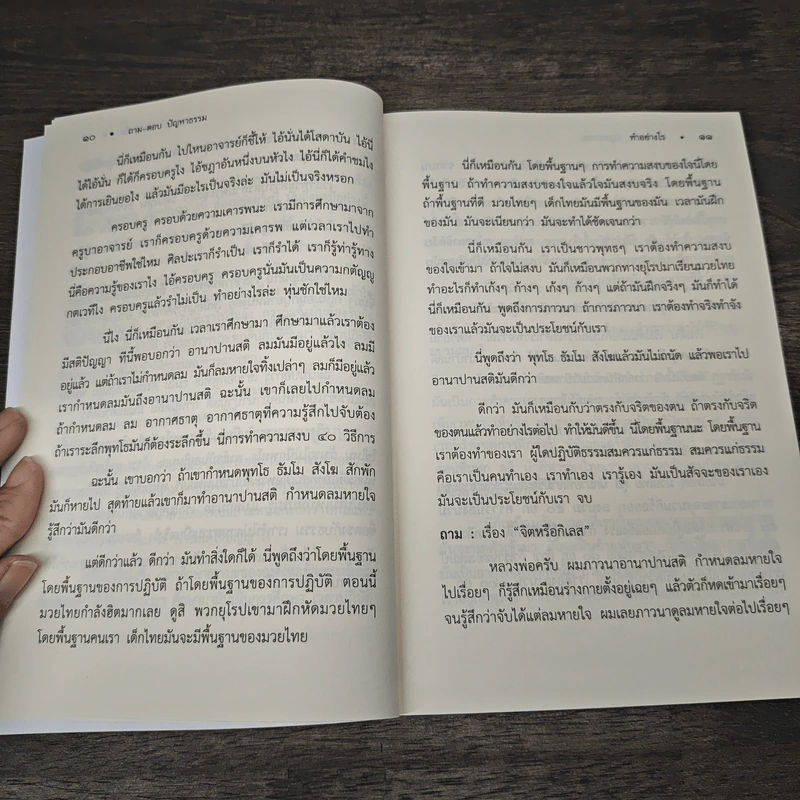 ๑๐ • ถาม-ตอบ ปัญหาธรรม
นี่ก็เหมือนกัน ไปไหนอาจารย์ก็ชี้ให้ ไอ้นั่นได้โสดาบัน ไอ้นี่
ได้ไอ้นั่น ก็ได้ก็ครอบครูไง ไอ้ชฎาอันหนึ่งบนหัวไง ไอ้นี่ก็ได้คำชมไง
ได้การเยินยอไง แล้วมันมีอะไรเป็นจริงล่ะ มันไม่เป็นจริงหรอก
ครอบครู ครอบด้วยความเคารพนะ เรามีการศึกษามาจาก
ครูบาอาจารย์ เราก็ครอบครูด้วยความเคารพ แต่เวลาเราไปทำ
ประกอบอาชีพใช่ไหม ศิลปะเราก็รำเป็น เราก็รำได้ เราก็รู้ท่ารู้ทาง
นี่คือความรู้ของเราไง ไอ้ครอบครู ครอบครูนั่นมันเป็นความกตัญญู
กตเวทีไง ครอบครูแล้วรำไม่เป็น ทำอย่างไรล่ะ หุ่นชักใช่ไหม
นี่ไง นี่ก็เหมือนกัน เวลาเราศึกษามา ศึกษามาแล้วเราต้อง
มีสติปัญญา ทีนี้พอบอกว่า อานาปานสติ ลมมันมีอยู่แล้วไง ลมมี
อยู่แล้ว แต่ถ้าเราไม่กำหนดลม มันก็ลมหายใจทิ้งเปล่าๆ ลมก็มีอยู่แล้ว
เรากำหนดลมมันถึงอานาปานสติ ฉะนั้น เขาก็เลยไปกำหนดลม
ถ้ากำหนดลม ลม อากาศธาตุ อากาศธาตุที่ความรู้สึกไปจับต้อง
ถ้าเราระลึกพุทโธมันก็ต้องระลึกขึ้น นี่การทำความสงบ ๔๐ วิธีการ
ฉะนั้น เขาบอกว่า ถ้าเขากำหนดพุทโธ ธัมโม สังโฆ สักพัก
มันก็หายไป สุดท้ายแล้วเขาก็มาทำอานาปานสติ กำหนดลมหายใจ
รู้สึกว่ามันดีกว่า
แต่ดีกว่าแล้ว ดีกว่า มันทำสิ่งใดก็ได้ นี่พูดถึงว่าโดยพื้นฐาน
โดยพื้นฐานของการปฏิบัติ ถ้าโดยพื้นฐานของการปฏิบัติ ตอนนี้
มวยไทยกำลังฮิตมากเลย ดูสิ พวกยุโรปเขามาฝึกหัดมวยไทยๆ
โดยพื้นฐานคนเรา เด็กไทยมันจะมีพื้นฐานของมวยไทย
ทำอย่างไร • ๑๑
นี่ก็เหมือนกัน โดยพื้นฐานๆ การทำความสงบของใจนี่โดย
พื้นฐาน ถ้าทำความสงบของใจแล้วใจมันสงบจริง โดยพื้นฐาน
ถ้าพื้นฐานที่ดี มวยไทยๆ เด็กไทยมันมีพื้นฐานของมัน เวลามันฝึก
ของมัน มันจะเนียนกว่า มันจะทำได้ชัดเจนกว่า
นี่ก็เหมือนกัน เราเป็นชาวพุทธๆ เราต้องทำความสงบ
ของใจเข้ามา ถ้าใจไม่สงบ มันก็เหมือนพวกทางยุโรปมาเรียนมวยไทย
ทำอะไรก็ทำเก้งๆ ก้างๆ เก้งๆ ก้างๆ แต่ถ้ามันฝึกจริงๆ มันก็ทำได้
นี่ก็เหมือนกัน พูดถึงการภาวนา ถ้าการภาวนา เราต้องทำจริงทำจัง
ของเราแล้วมันจะเป็นประโยชน์กับเรา
นี่พูดถึงว่า พุทโธ ธัมโม สังโฆแล้วมันไม่ถนัด แล้วพอเราไป
อานาปานสติมันดีกว่า
ดีกว่า มันก็เหมือนกับว่าตรงกับจริตของตน ถ้าตรงกับจริต
ของตนแล้วทำอย่างไรต่อไป ทำให้มันดีขึ้น นี่โดยพื้นฐานนะ โดยพื้นฐาน
เราต้องทำของเรา ผู้ใดปฏิบัติธรรมสมควรแก่ธรรม สมควรแก่ธรรม
คือเราเป็นคนทำเอง เราทำเอง เรารู้เอง มันเป็นสัจจะของเราเอง
มันจะเป็นประโยชน์กับเรา จบ
ถาม : เรื่อง “จิตหรือกิเลส”
หลวงพ่อครับ ผมภาวนาอานาปานสติ กำหนดลมหายใจ
ไปเรื่อยๆ ก็รู้สึกเหมือนร่างกายตั้งอยู่เฉยๆ แล้วตัวก็หดเข้ามาเรื่อยๆ
จนรู้สึกว่าจับได้แต่ลมหายใจ ผมเลยภาวนาดูลมหายใจต่อไปเรื่อยๆ